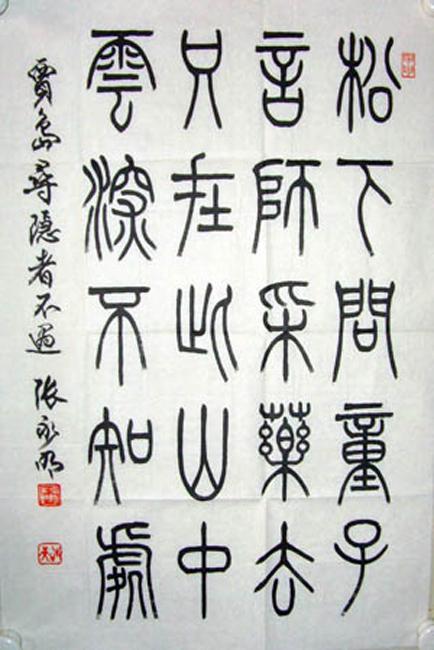 松下問童子
言師采藥去
只在此山中
雲深不知處
賈島尋隱者不遇 張永明